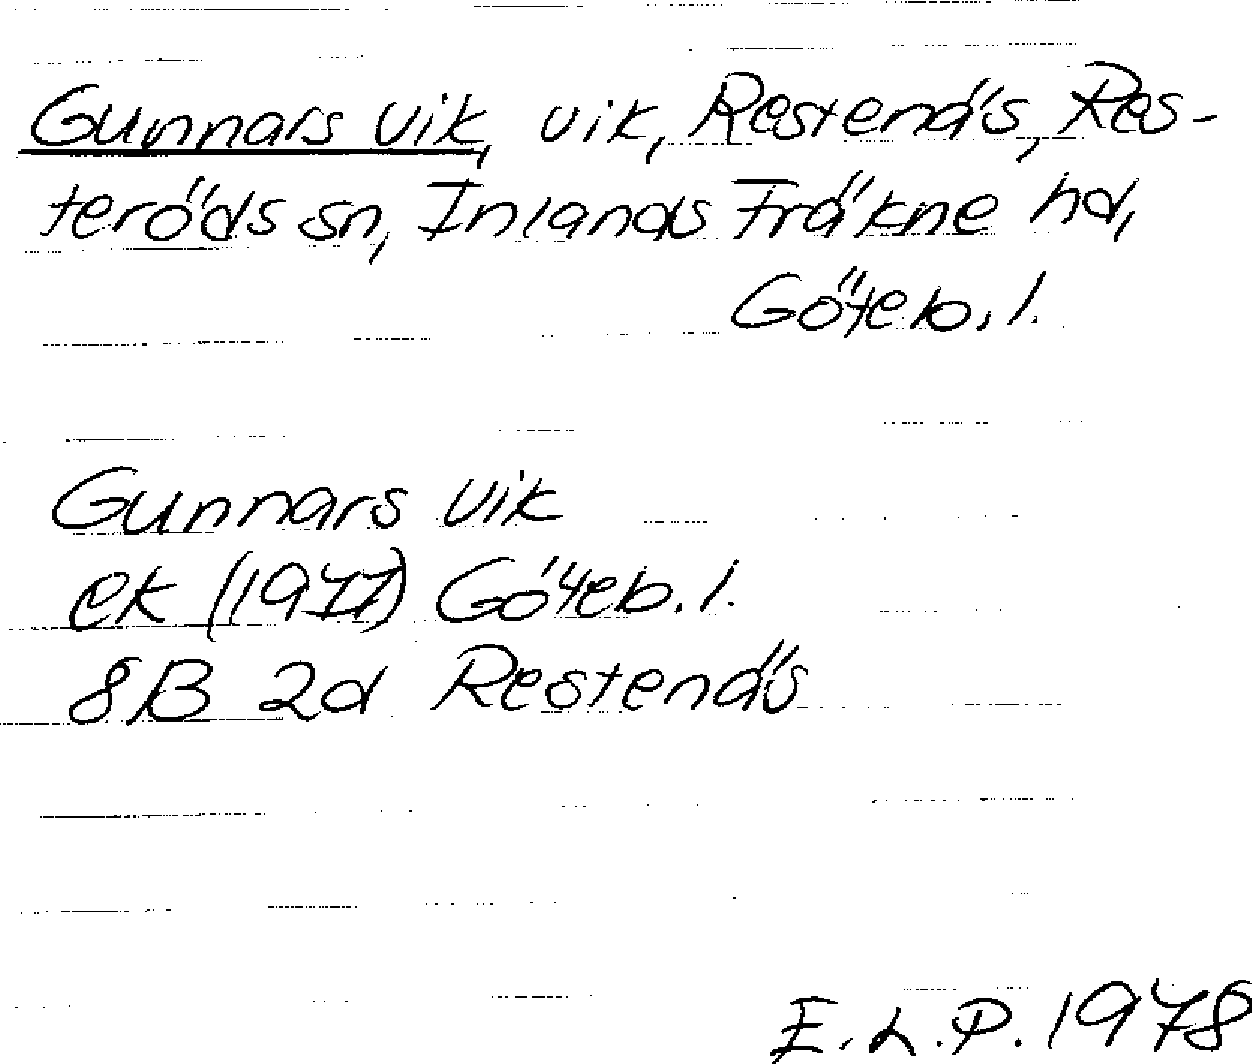 Gunnars vik, vik, Restenäs, Res-
teröds sn, Inlands Fräkne hd,
Göteb. l.
Gunnars vik
ek (1977) Göteb. l.
8B 2d Restenäs
E.L.P. 1978